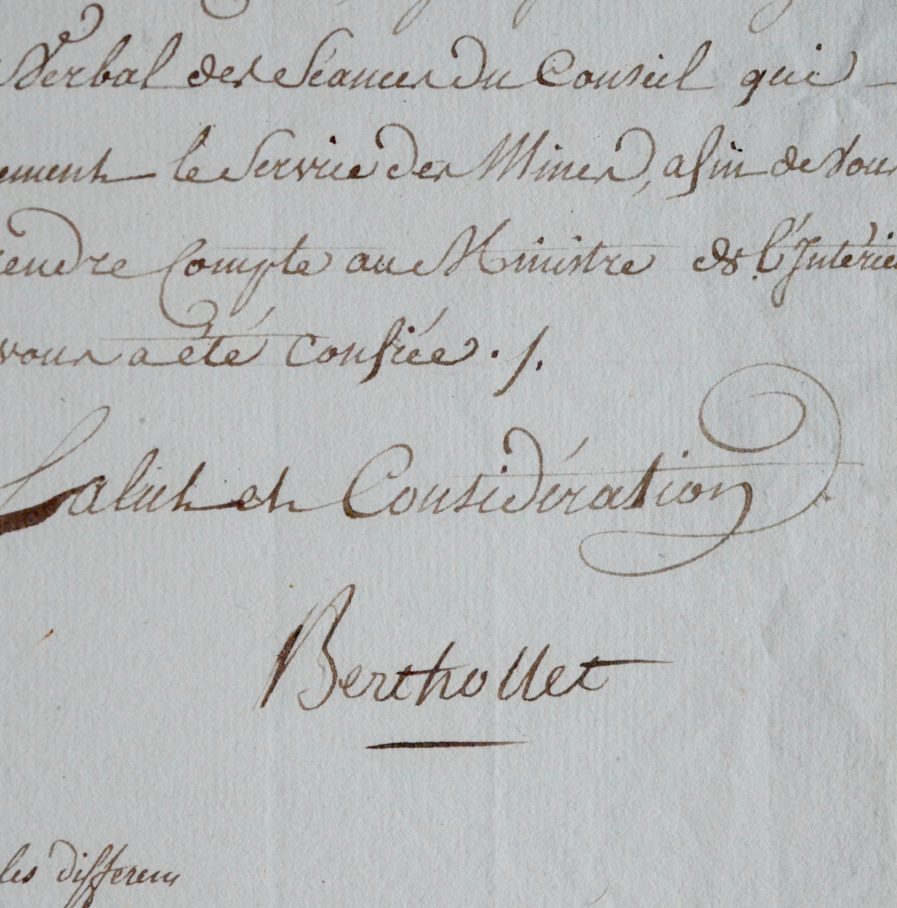 Verbal des Séances du Conseil qui
ement le Service des Mines, afin de Vous
endre Compte au Ministre de l'Intérieu
vous a été Confiée ./.
Salut et Considération
Berthollet
les differens